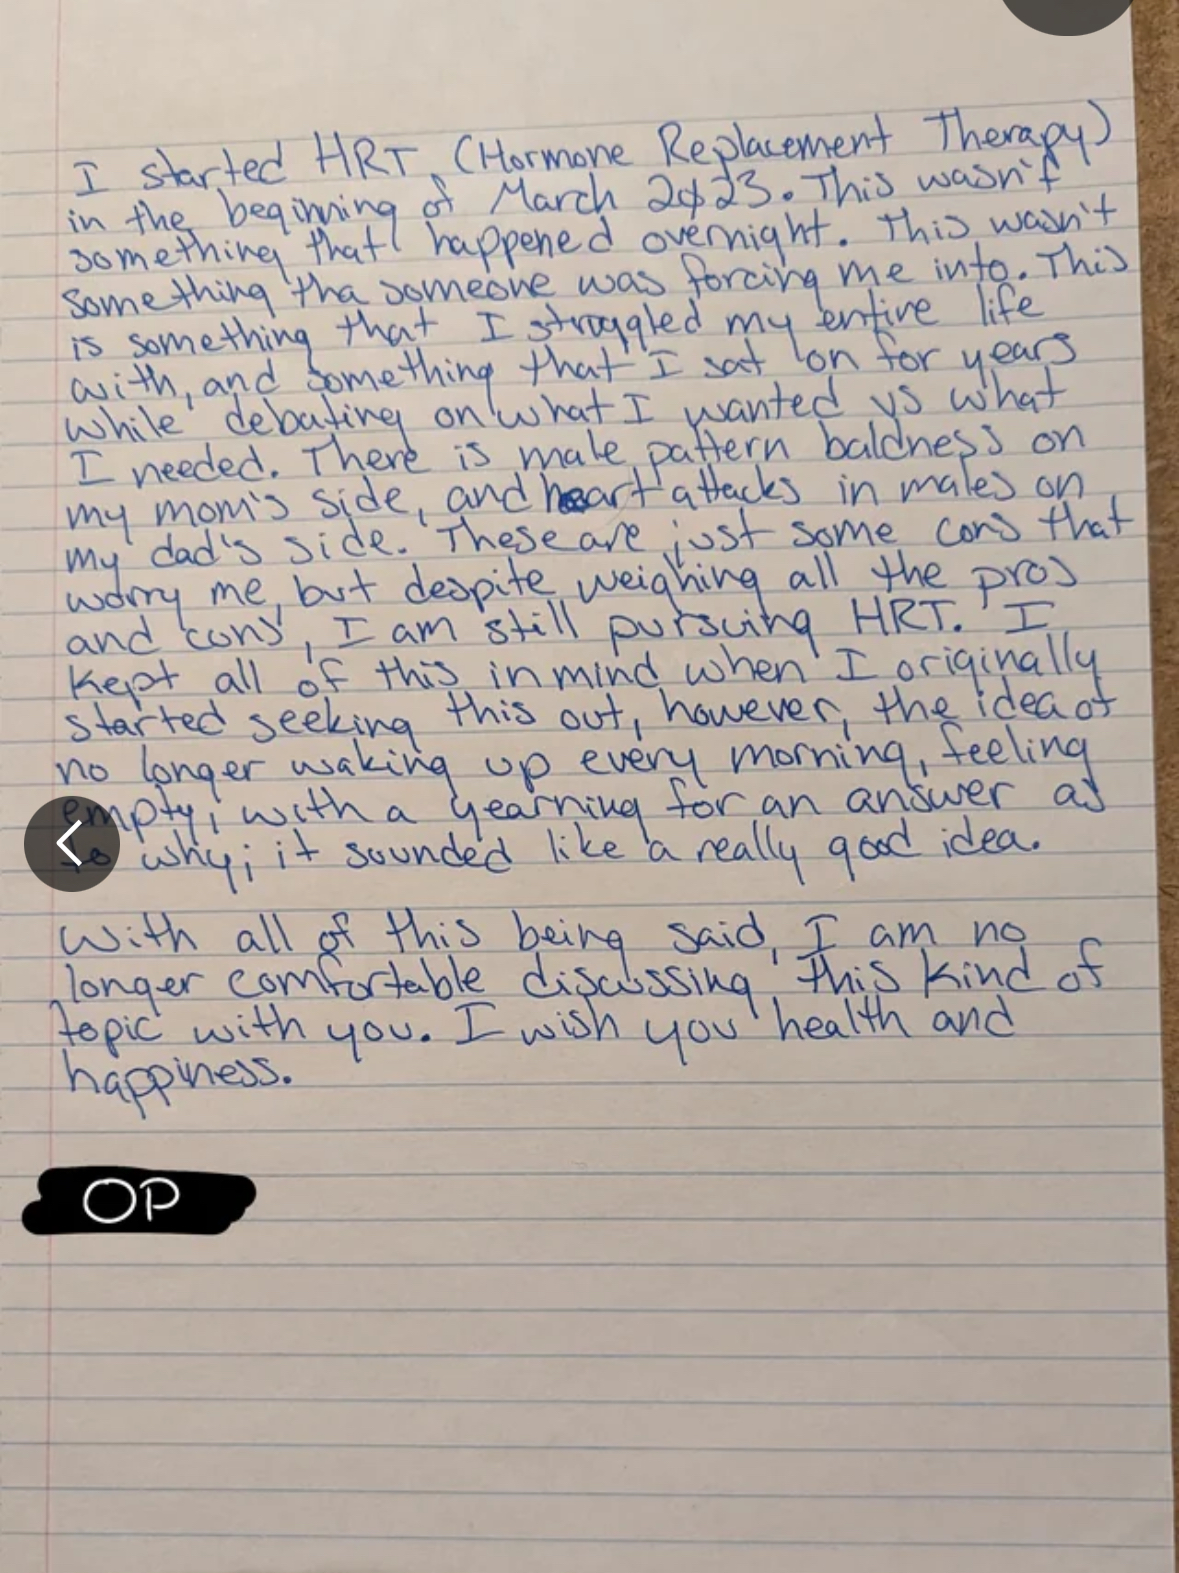 I started HRT (Hormone Replacement Therapy)
in the beginning of March 2023. This wasn't
something that happened overnight. This wasn't
something tha someone was forcing me into. This
is something that I struggled my entire life
with, and something that I sat on for years
while debating on what I wanted vs what
I needed. There is male pattern baldness on
my mom's side, and heart attacks in males on
my dad's side. These are just some cons that
worry me, but despite weighing all the pros
and cons, I am still pursuing HRT. I
kept all of this in mind when I originally
started seeking this out, however, the idea of
no longer waking up every morning, feeling
empty, with a yearning for an answer as
to why; it sounded like a really good idea.
With all of this being said, I am no
longer comfortable discussing this kind of
topic with you. I wish you health and
happiness.
OP